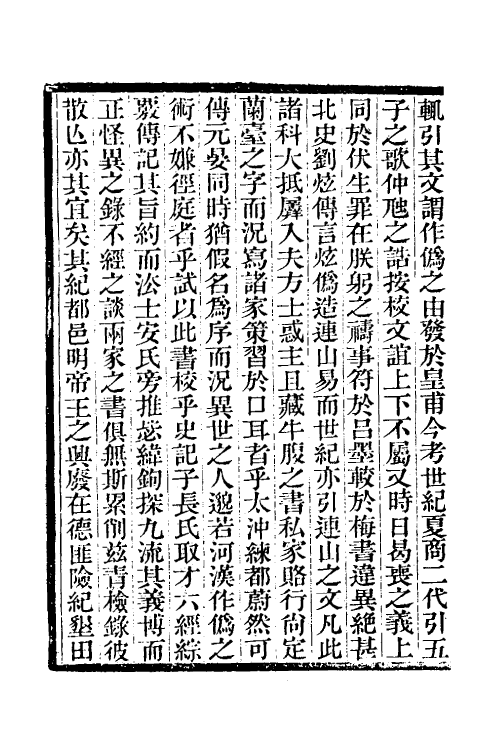 輒引其文謂作偽之由發於皇甫今考世紀夏商二代引五
子之歌仲虺之誥按校文誼上下不屬又時日曷喪之義上
同於伏生罪在朕躬之禱事符於呂墨較於梅書違異絶甚
北史劉炫傳言炫偽造連山易而世紀亦引連山之文凡此
諸科大抵羼入夫方士惑主且藏牛腹之書私家賂行尙定
蘭臺之字而況寫諸家策習於口耳者乎太沖練都蔚然可
傳元晏同時猶假名爲序而況異世之人邈若河漢作僞之
術不嫌徑庭者乎試以此書校乎史記子長氏取才六經綜
覈傳記其旨約而浤士安氏旁推毖緯鉤探九流其義博而
正怪異之錄不經之談兩家之書俱無斯累削玆青檢錄彼
散亾亦其宜矣其紀都邑明帝王之興廢在德匪險紀墾田